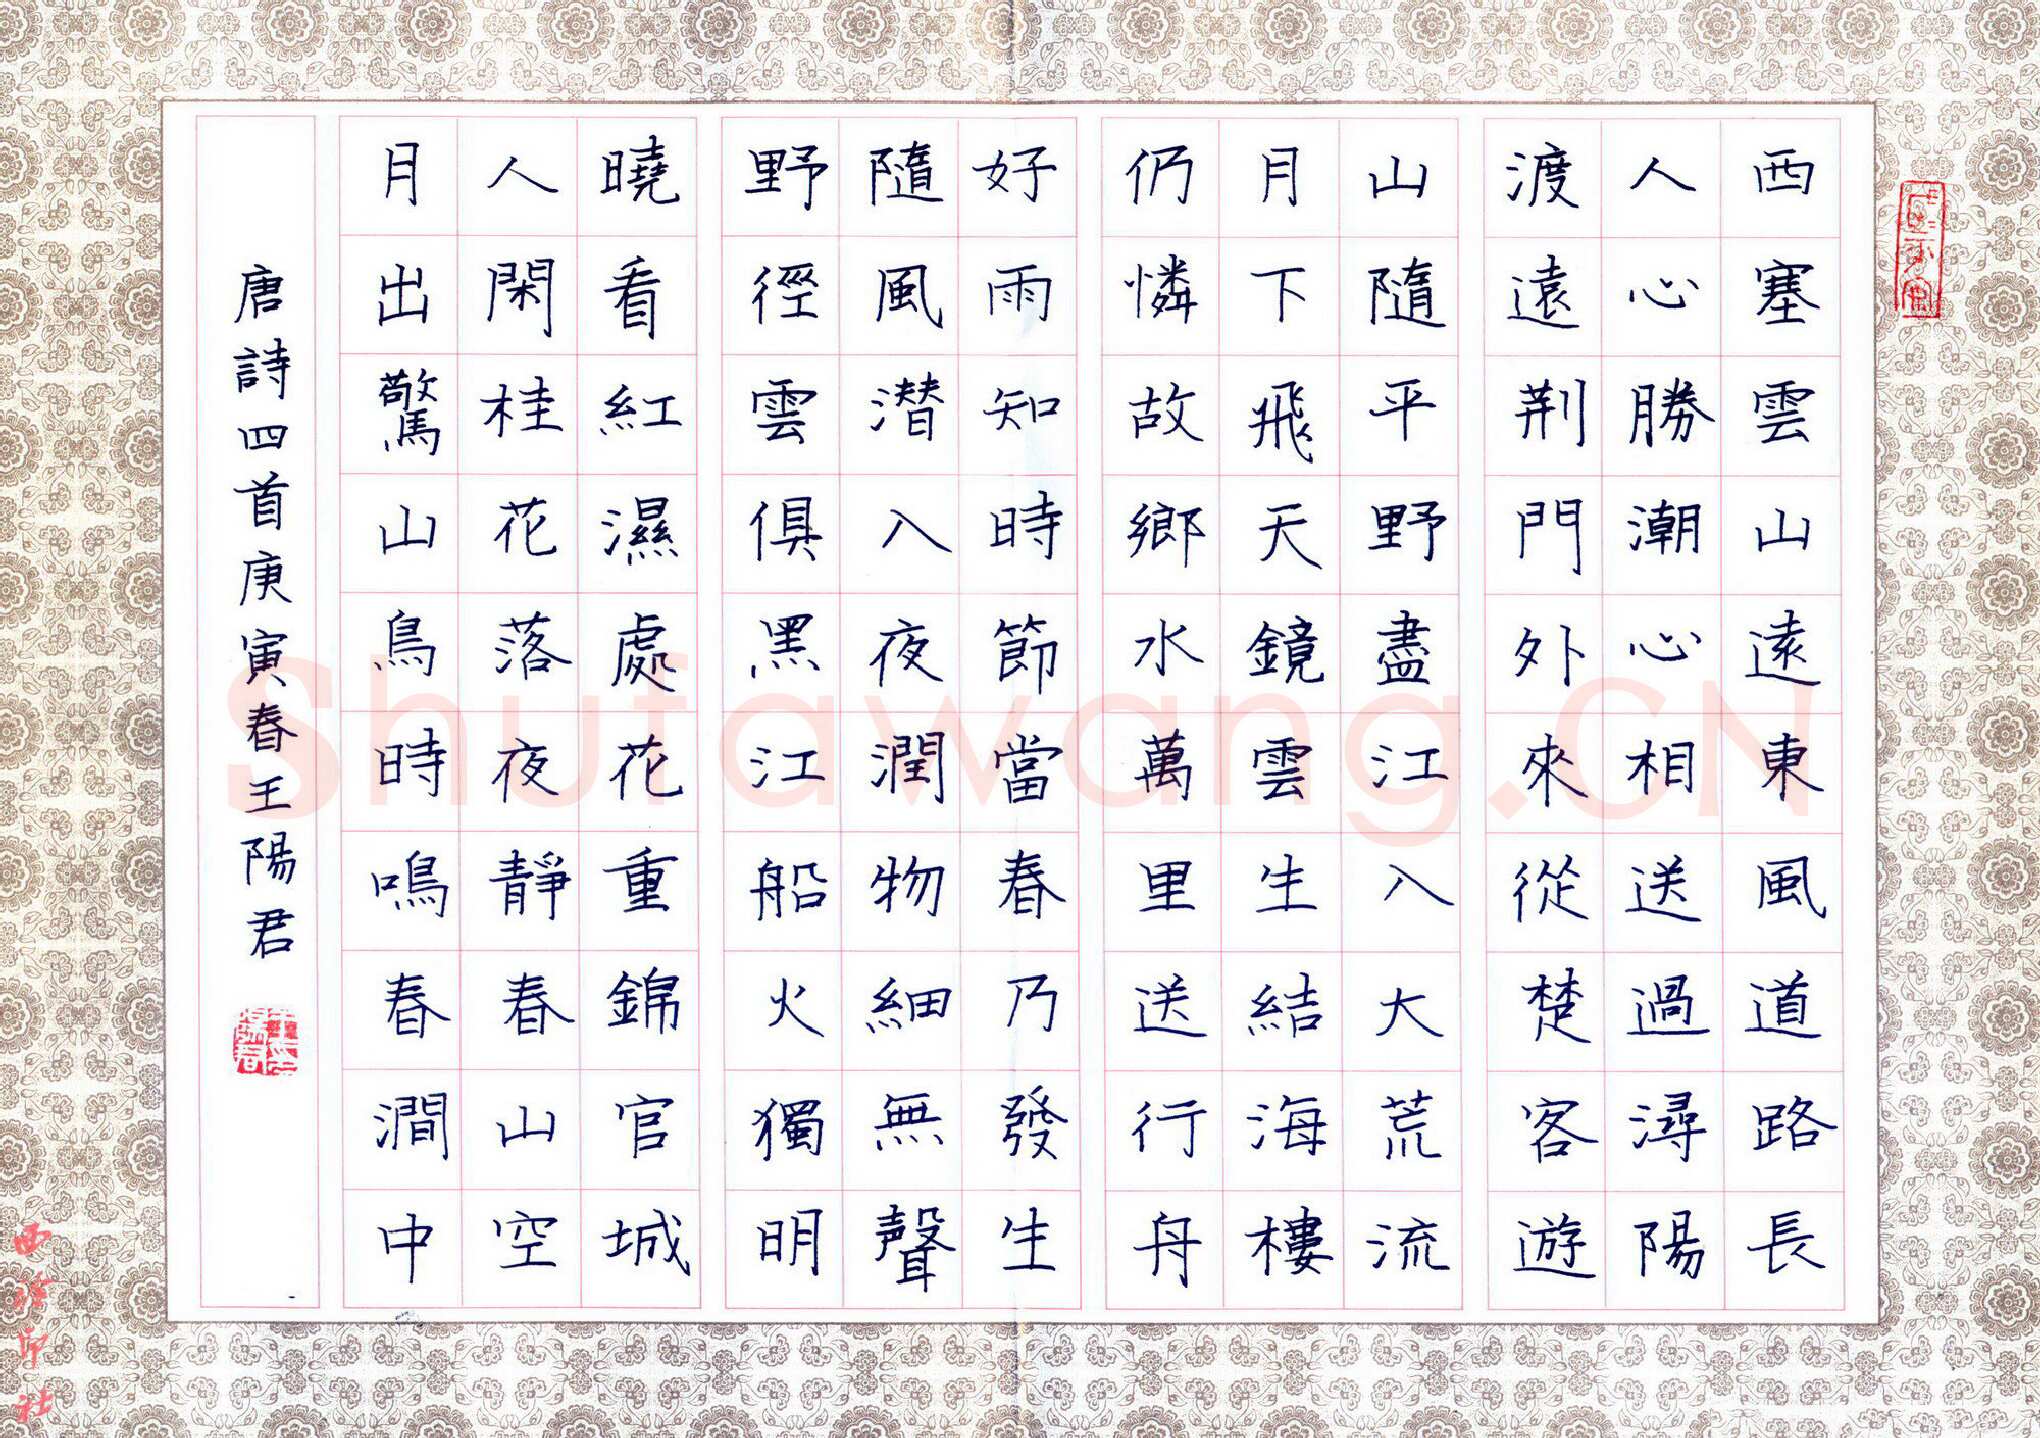 西塞雲山遠東風道路長
人心勝潮心相送過潯陽
渡遠荆門外來從楚客遊
山隨平野盡江入大荒流
月下飛天鏡雲生結海樓
仍憐故鄉水萬里送行舟
好雨知時節當春乃發生
隨風潛入夜潤物細無聲
野徑雲俱黑江船火獨明
曉看紅濕處花重錦官城
人閑桂花落夜靜春山空
月出驚山鳥時鳴春澗中
唐詩四首庚寅春王陽君
西泠印社
Shufawang.CN